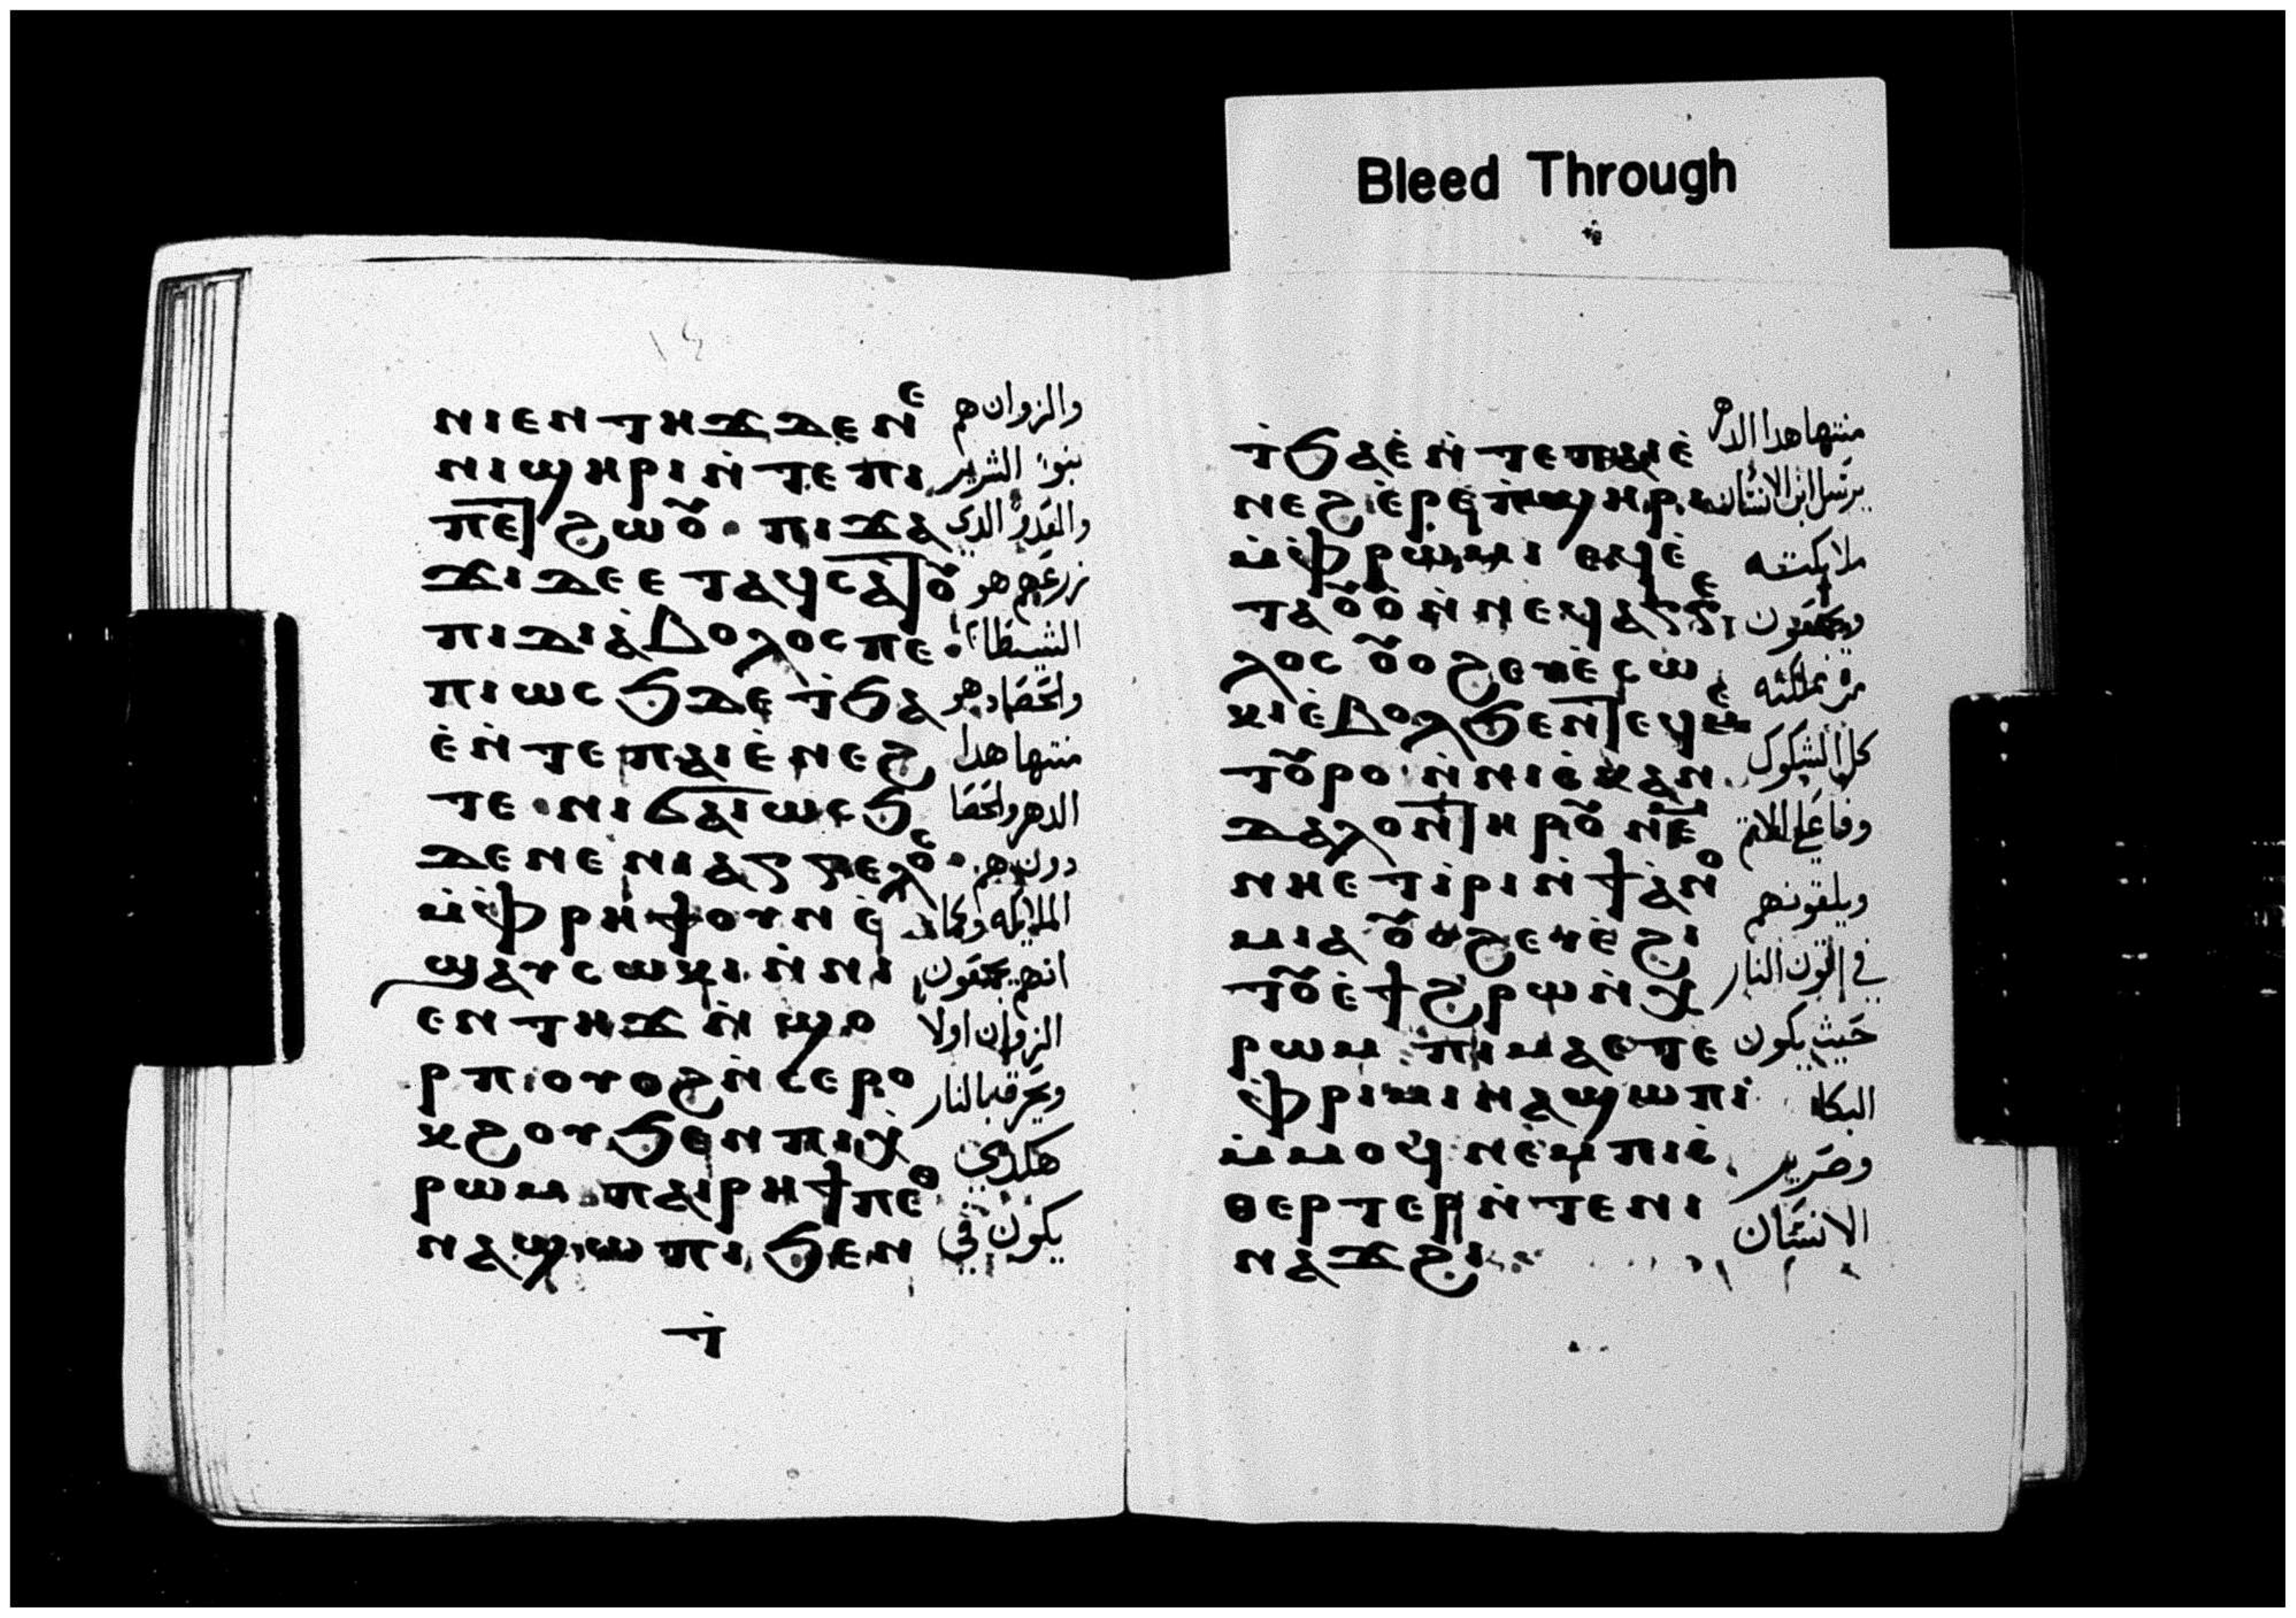 Bleed Through
ⲛⲓⲉⲛⲧⲏϫ ⲇⲉ ⲛⲉ
والزوان هم
ⲛⲓϣⲏⲣⲓ ⲛ̇ⲧⲉ ⲡⲓ
بنوا الشرير
ⲡⲉⲧϩⲱⲟⲩ · ⲡⲓϫⲁ
والعدو الدي
ϫⲓ ⲇⲉ ⲉⲧⲁϥⲥⲁⲧⲟⲩ
زرعهم هو
ⲡⲓⲇⲓⲁ̇ⲃⲟⲗⲟⲥ ⲡⲉ
الشيطان
ⲡⲓⲱⲥϧ ⲇⲉ ⲧ̇ϧⲁ
والحصاد هو
ⲉ̇ ⲛ̇ⲧⲉ ⲡⲁⲓⲉ̇ⲛⲉϩ
منتها هدا
ⲧⲉ · ⲛⲓϭⲁⲓⲱⲥϧ
الدهر والحصا
ⲇⲉ ⲛⲉ ⲛⲓⲁⲅⲅⲉⲗⲟⲥ ·
دون هم
ⲙ̇ⲫ̇ⲣⲏϯ ⲟⲩⲛ ⲉ̇
الملايكه وكما
ϣⲁⲩⲥⲱⲕⲓ ⲛ̇ⲛⲓ
انهم يجمعون
ⲉⲛⲧⲏϫ ⲛ̇ϣⲟ
الزوان اولا
ⲣⲡ ⲓⲟⲩⲟϩ ⲛ̇ⲥⲉⲣⲟ
ويحرق بالنار
ⲕϩⲟⲩ ϧⲉⲛ ⲡⲓⲭ̇
هكدي
ⲣⲱⲙ ⲡⲁⲓⲣⲏϯ ⲡⲉⲑ
يكون في
ⲛⲁϣⲱⲡⲓ ϧⲉⲛ
ⲧ̇
منتها هدا الدهر
ⲧ̇ϧⲁⲉ̇ ⲛ̇ⲧⲉ ⲡⲁⲓⲉ̇
يرسل ابن الانسان
ⲛⲉϩ
ⲙ̇ⲫ̇ⲣⲱⲙⲓ ⲉϥⲉ̇
ملايكته
ⲧⲁⲟⲩⲟ̀ ⲛ̇ⲛⲉϥⲁⲅⲅⲉ
ويجمعون
ⲗⲟⲥ ⲟⲩⲟϩ ⲉⲩⲉ̇ⲥⲱ
من مملكته
ⲕⲓ ⲉ̇ⲃⲟⲗ ϧⲉⲛ ⲧⲉϥⲙⲉ
كل الشكوك
ⲧⲟⲩⲣⲟ ⲛ̇ⲛⲓⲥ̇ⲕⲁⲛ
وفاعلي الاثم
ⲇⲁⲗⲟⲛ ⲧⲏⲣⲟⲩ ⲛⲉⲙ
ويلقونهم
ⲛⲏⲉⲧⲓ̇ⲣⲓ ⲛ̇ϯⲁ̇ⲛⲟ
في اتون النار
ⲙⲓⲁ ⲟⲩⲟϩ ⲉⲩⲉ̇ϩⲓ
حيث يكون
ⲧⲟⲩ ⲉ̇ϯϩⲣⲱ ⲛ̇ⲭ̇
البكا
ⲣⲱⲙ ⲡⲓⲙⲁ ⲉⲧⲉ
وصرير
ⲫ̇ⲣⲓⲙⲓ ⲛⲁϣⲱⲡⲓ
الاسنان
ⲙ̇ⲙⲟϥ ⲛⲉⲙ ⲡⲓⲥ̇
ⲑⲉⲣⲧⲉⲣ ⲛ̇ⲧⲉ ⲛⲓ
ⲛⲁϫϩⲓ